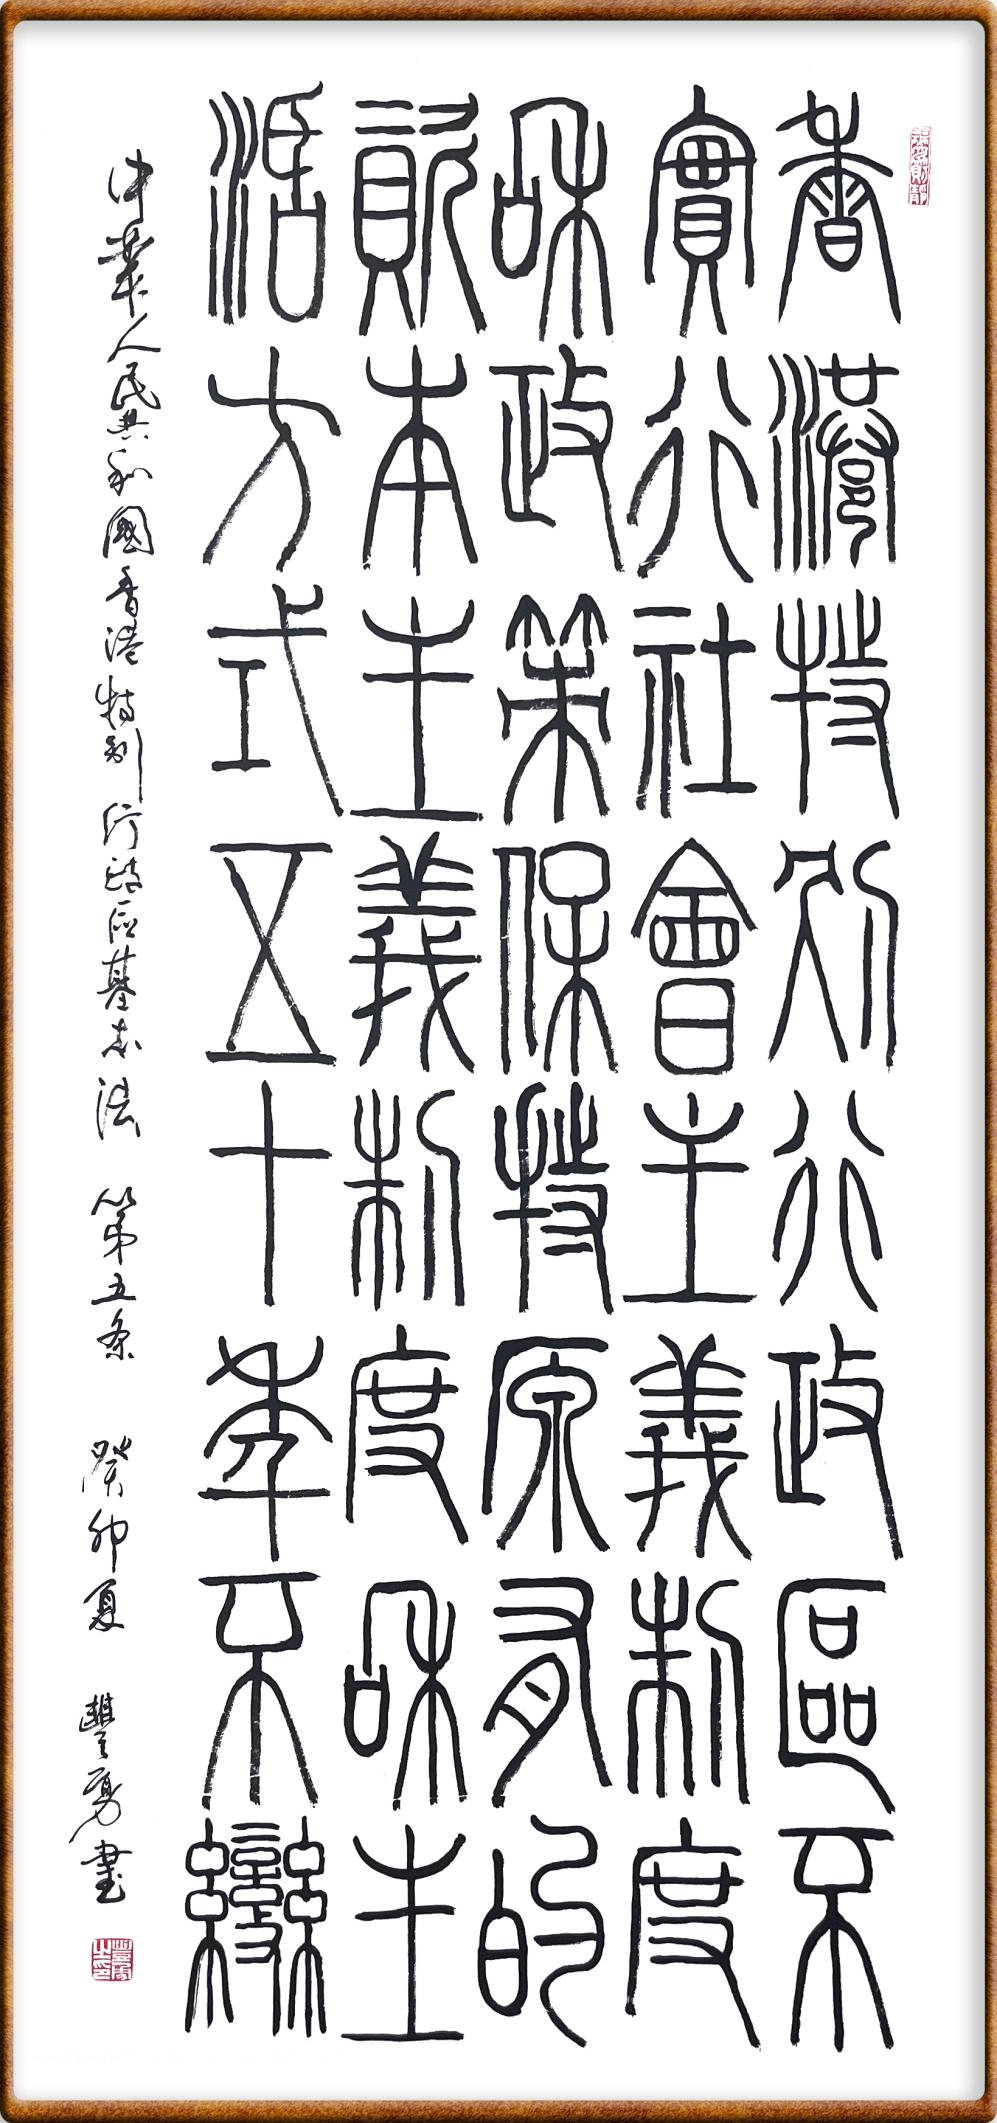 香港特別行政區不
實行社會主義制度
和政策保持原有的
資本主義制度和生
活方式五十年不變
中華人民共和國香港特別行政區基本法 第五条 癸卯夏 豐勇書